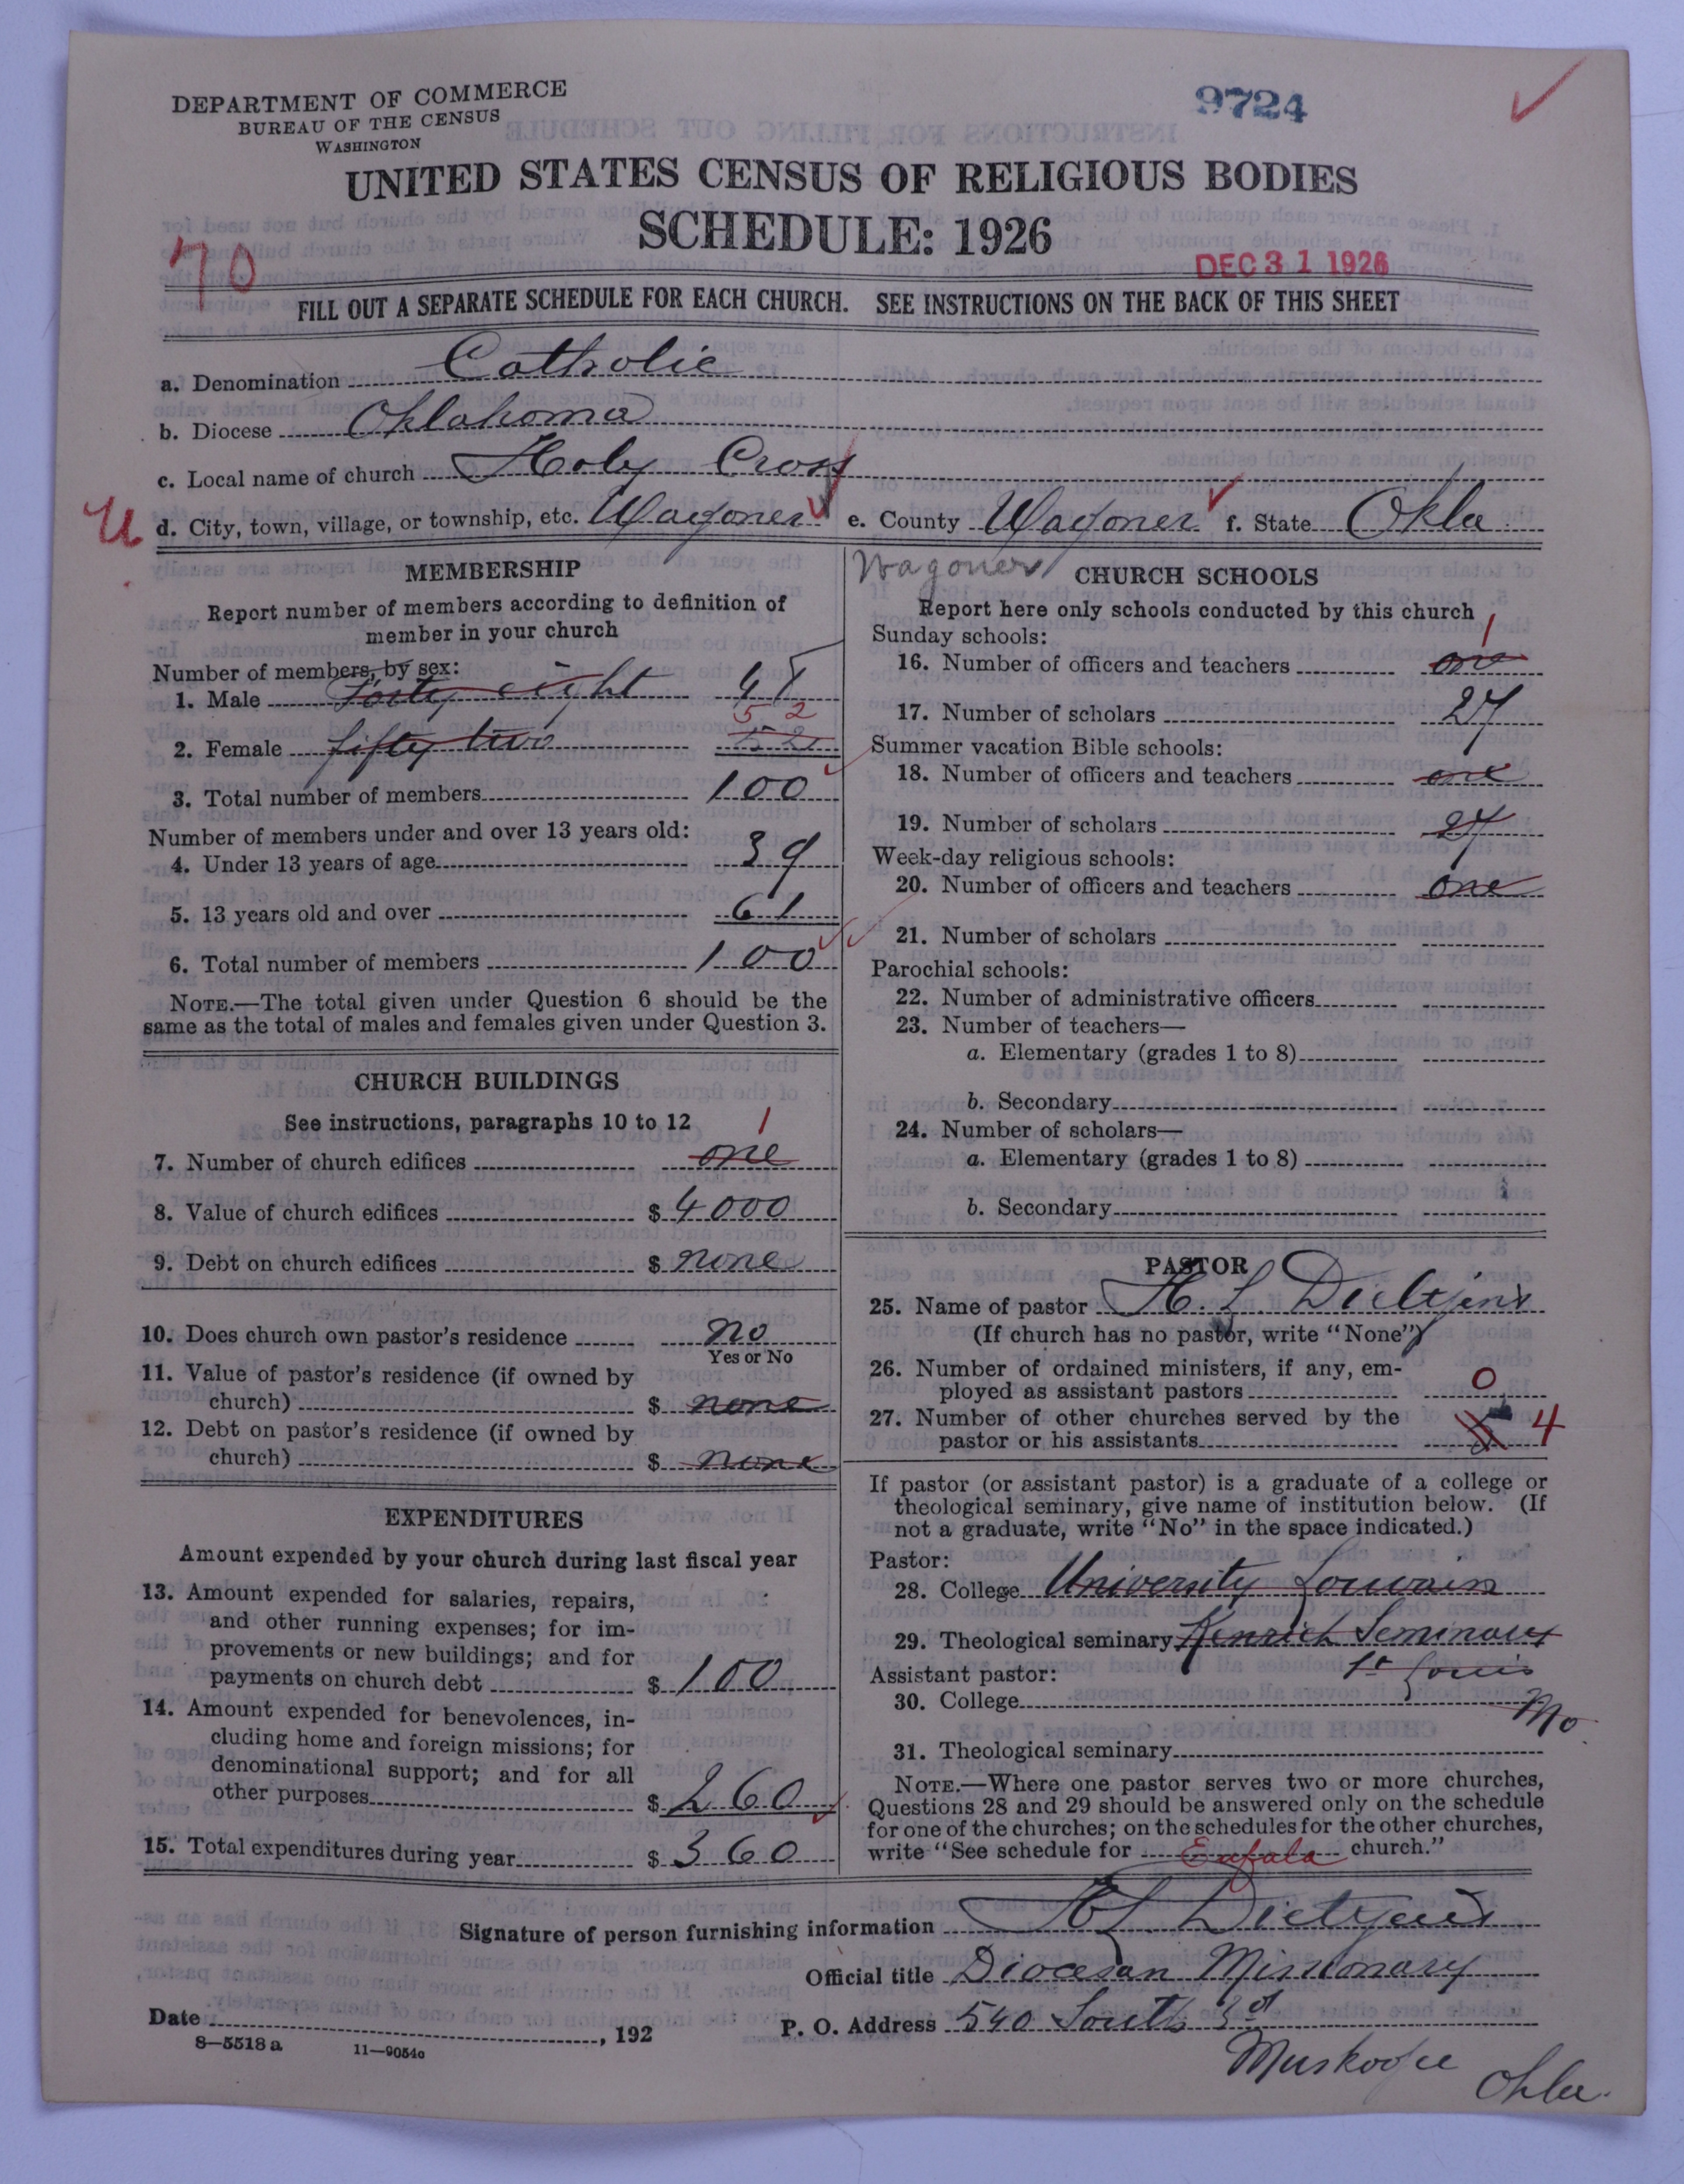 DEPARTMENT OF COMMERCE
BUREAU OF THE CENSUS
WASHINGTON
9724
UNITED STATES CENSUS OF RELIGIOUS BODIES
SCHEDULE: 1926
70
DEC 31 1926
FILL OUT A SEPARATE SCHEDULE FOR EACH CHURCH. SEE INSTRUCTIONS ON THE BACK OF THIS SHEET
a. Denomination Catholic
b. Diocese Oklahoma
c. Local name of church Holy Cross
U d. City, town, village, or township, etc. Wagoner e. County Wagoner f. State Okla
Wagoner
MEMBERSHIP
Report number of members according to definition of
member in your church
Number of members, by sex:
1. Male Forty eight 48
52
2. Female fifty two 52
3. Total number of members 100
Number of members under and over 13 years old:
4. Under 13 years of age 39
5. 13 years old and over 61
6. Total number of members 100
NOTE.—The total given under Question 6 should be the
same as the total of males and females given under Question 3.
CHURCH BUILDINGS
See instructions, paragraphs 10 to 12
1
7. Number of church edifices one
8. Value of church edifices $ 4000
9. Debt on church edifices $ none
10. Does church own pastor's residence no
Yes or No
11. Value of pastor's residence (if owned by
church) $ none
12. Debt on pastor's residence (if owned by
church) $ none
EXPENDITURES
Amount expended by your church during last fiscal year
13. Amount expended for salaries, repairs,
and other running expenses; for im-
provements or new buildings; and for
payments on church debt $ 100
14. Amount expended for benevolences, in-
cluding home and foreign missions; for
denominational support; and for all
other purposes $ 260
15. Total expenditures during year $ 360
CHURCH SCHOOLS
Report here only schools conducted by this church
Sunday schools:
1
16. Number of officers and teachers one
17. Number of scholars 27
Summer vacation Bible schools:
18. Number of officers and teachers one
19. Number of scholars 27
Week-day religious schools:
20. Number of officers and teachers one
21. Number of scholars
Parochial schools:
22. Number of administrative officers
23. Number of teachers—
a. Elementary (grades 1 to 8)
b. Secondary
24. Number of scholars—
a. Elementary (grades 1 to 8)
b. Secondary
PASTOR
25. Name of pastor H. L. Dieltjens
(If church has no pastor, write "None")
26. Number of ordained ministers, if any, em-
ployed as assistant pastors 0
27. Number of other churches served by the
pastor or his assistants 4
If pastor (or assistant pastor) is a graduate of a college or
theological seminary, give name of institution below. (If
not a graduate, write "No" in the space indicated.)
Pastor:
28. College University Louvain
29. Theological seminary Kenrick Seminary
Assistant pastor: St Louis
30. College Mo
31. Theological seminary
NOTE.—Where one pastor serves two or more churches,
Questions 28 and 29 should be answered only on the schedule
for one of the churches; on the schedules for the other churches,
write "See schedule for Eufala church."
Signature of person furnishing information H L Dieltjens
Official title Diocesan Missionary
Date , 192
P. O. Address 540 South 3rd
Muskogee Okla.
8—5518 a 11—9054a